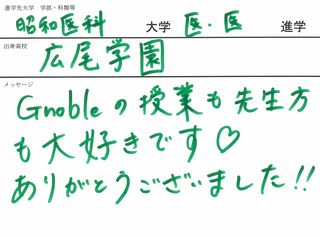 進学先大学　学部・科類等
昭和医科 大学 医・医 進学
出身高校
広尾学園
メッセージ
Gnobleの授業も先生方
も大好きです♡
ありがとうございました!!